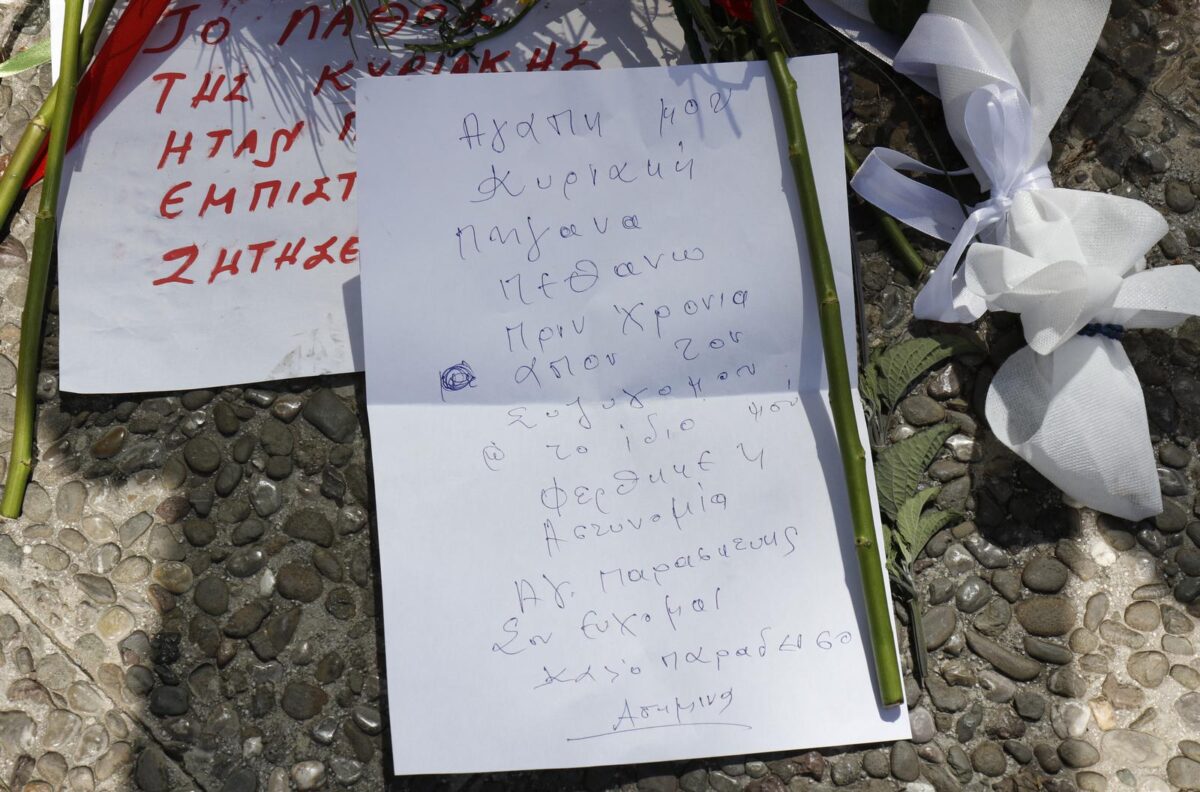 ΤΟ ΠΑΘΟΣ
ΤΗΣ ΚΥΡΙΑΚΗΣ
ΗΤΑΝ
ΕΜΠΙΣΤ
ΖΗΤΗΣΕ
Αγαπη μου
Κυριακή
Πηγανα
πεθανω
πριν χρονια
απου τον
συζυγομου,
το ίδιο μου
φερθηκε η
Αστυνομία
Αγ. Παρασκευης
Σου ευχομαι
καλο παραδεισο
Ασημινα